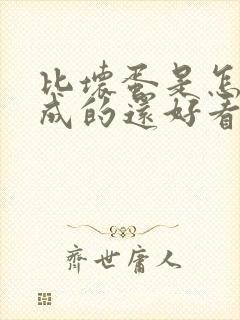 比壞蛋是怎
成的還好看
齊世庸人